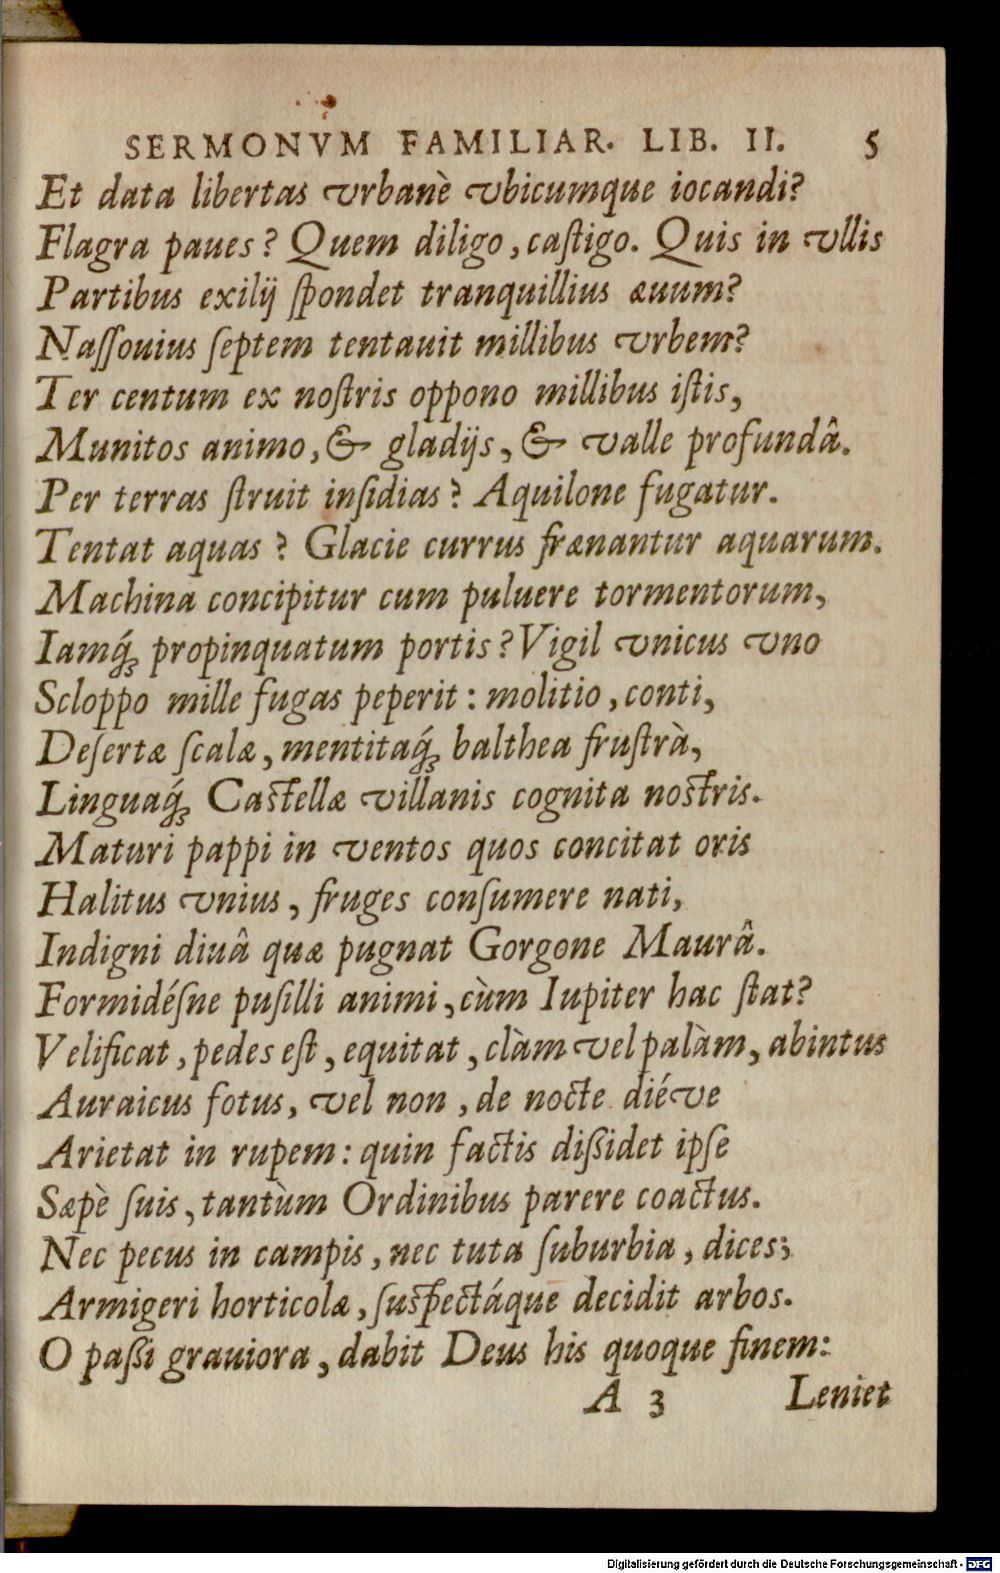 SERMONVM FAMILIAR. LIB. II. 5
Et data libertas vrbanè vbicumque iocandi?
Flagra paues? Quem diligo, caſtigo. Quis in vllis
Partibus exilij ſpondet tranquillius æuum?
Naſſouius ſeptem tentauit millibus vrbem?
Ter centum ex noſtris oppono millibus iſtis,
Munitos animo, & gladijs, & valle profundâ.
Per terras ſtruit inſidias? Aquilone fugatur.
Tentat aquas? Glacie currus frænantur aquarum.
Machina concipitur cum puluere tormentorum,
Iamq́; propinquatum portis? Vigil vnicus vno
Scloppo mille fugas peperit: molitio, conti,
Deſertæ ſcalæ, mentitaq́; balthea fruſtrà,
Linguaq́; Caſtellæ villanis cognita noſtris.
Maturi pappi in ventos quos concitat oris
Halitus vnius, fruges conſumere nati,
Indigni diuâ quæ pugnat Gorgone Maurâ.
Formidéſne puſilli animi, cùm Iupiter hac ſtat?
Velificat, pedes eſt, equitat, clàm vel palàm, abintus
Auraicus fotus, vel non, de nocte diéve
Arietat in rupem: quin factis diſsidet ipſe
Sæpè ſuis, tantùm Ordinibus parere coactus.
Nec pecus in campis, nec tuta ſuburbia, dices;
Armigeri horticolæ, ſuſpectáque decidit arbos.
O paſsi grauiora, dabit Deus his quoque finem:
A 3 Leniet
Digitalisierung gefördert durch die Deutsche Forschungsgemeinschaft - DFG